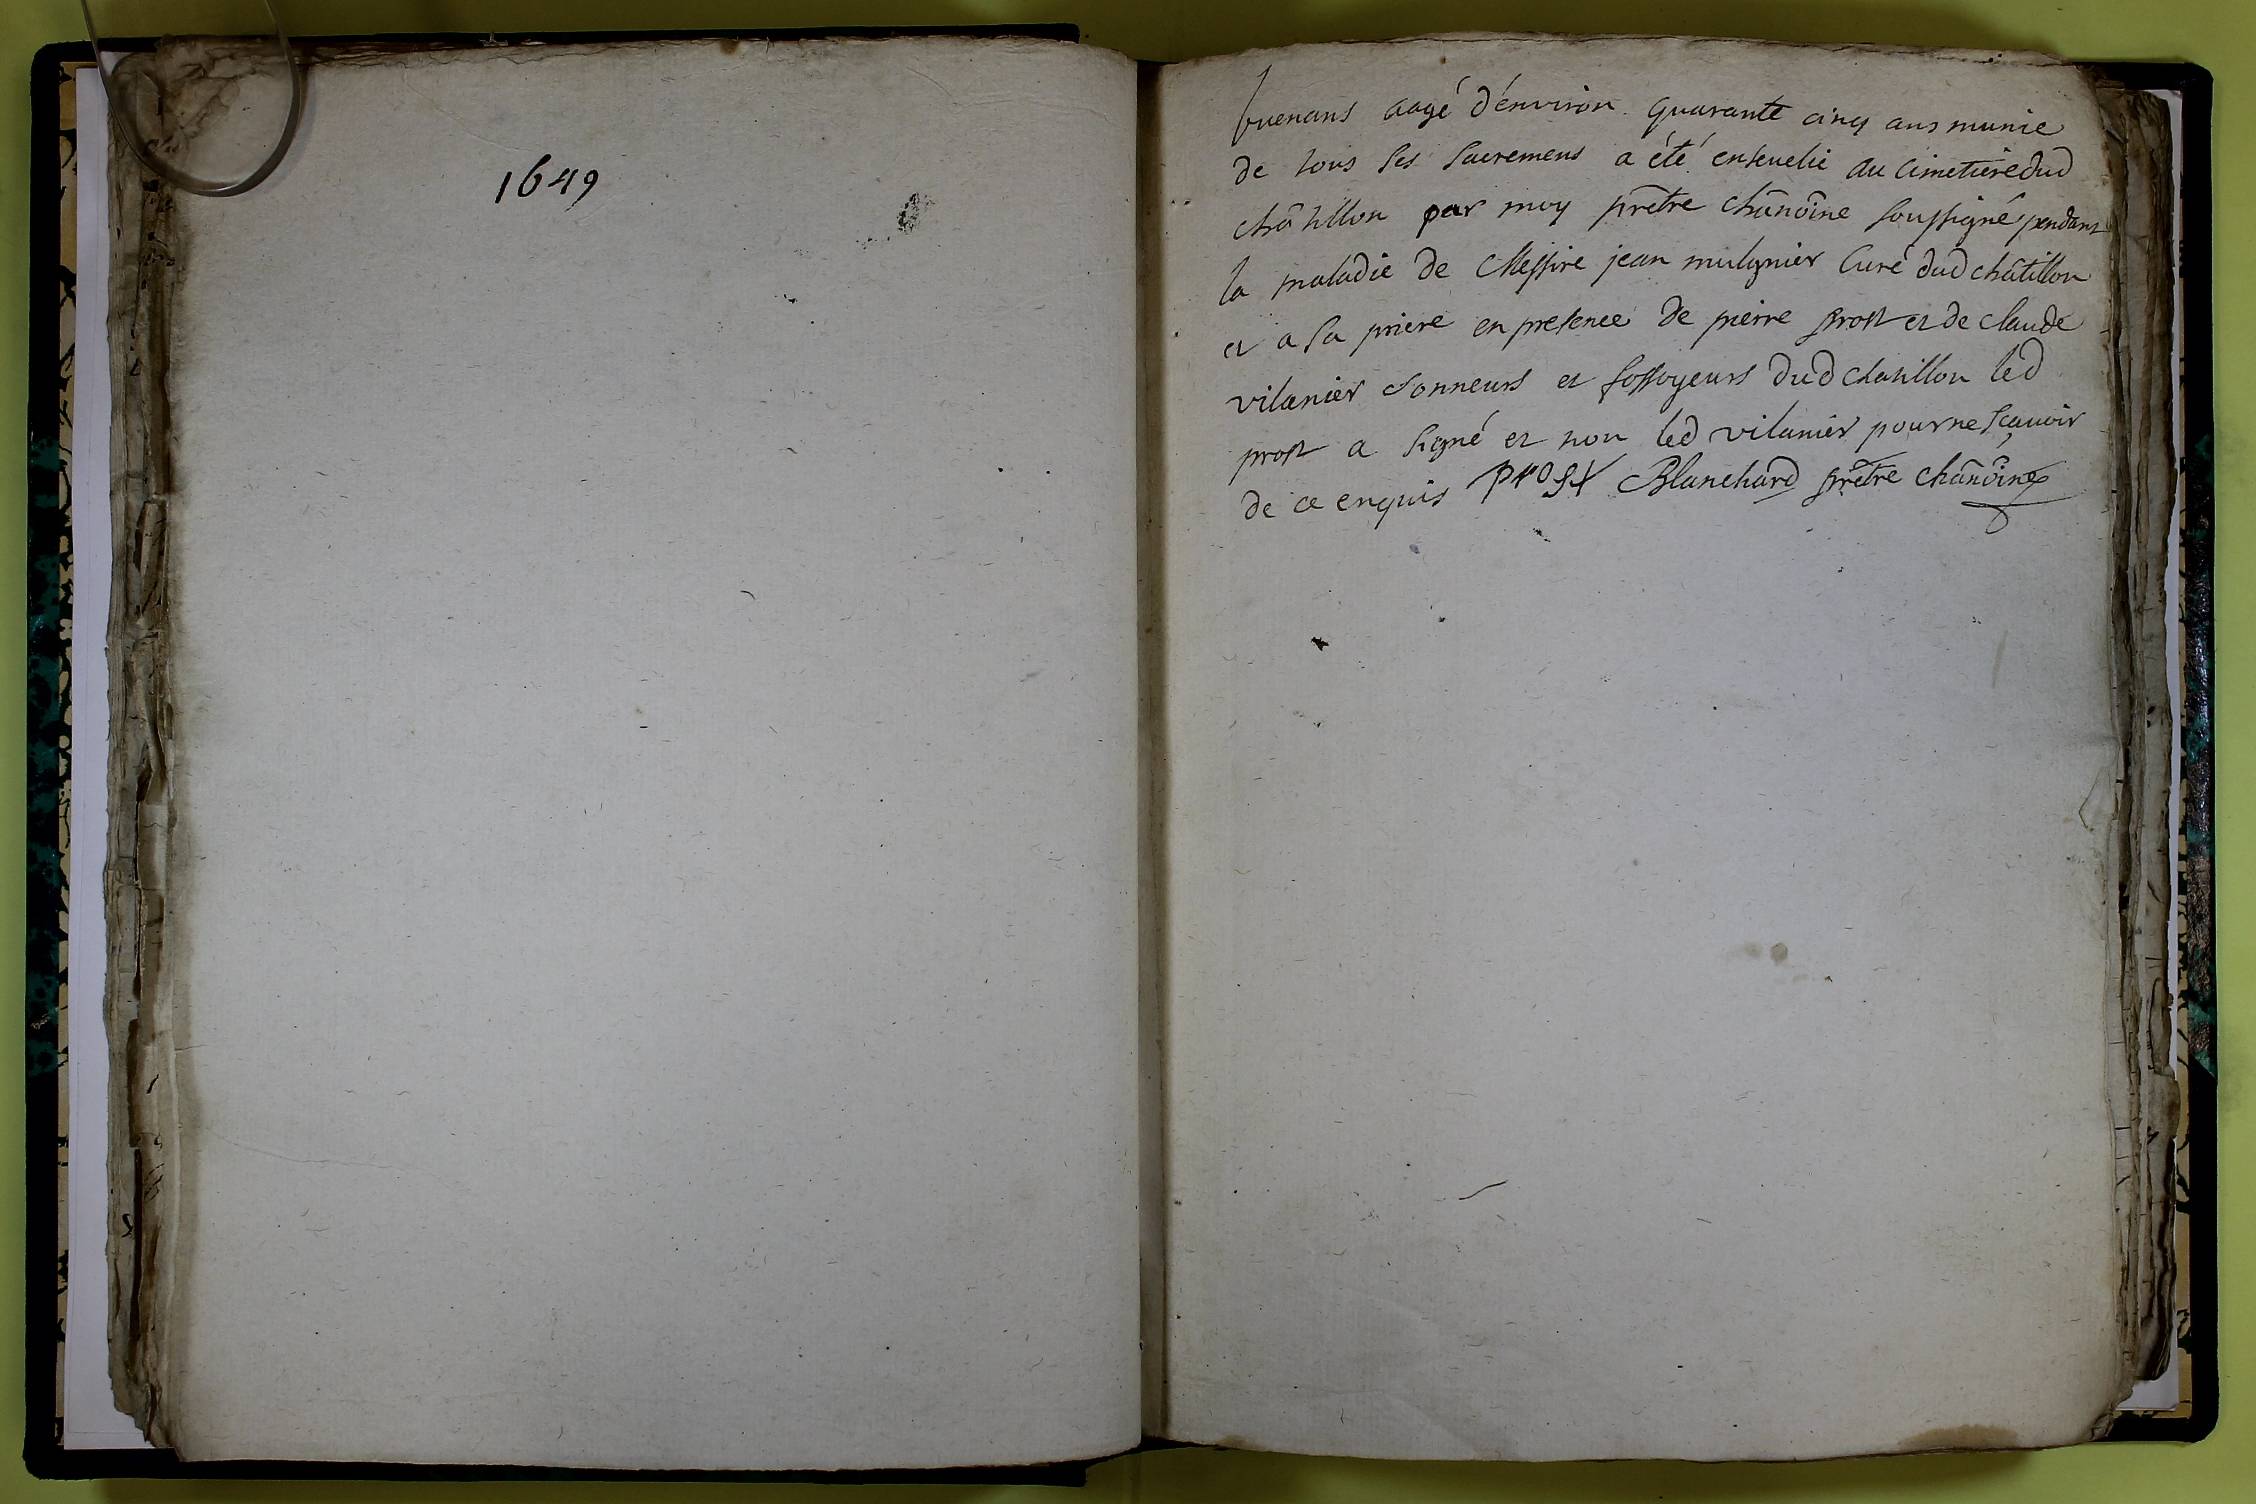 1649
buenans aagé d'énviron quarante cinq ans munie
de tous ses sacremens a été enseuelie au cimetiere dud
châtillon par moy prêtre chânoîne soussigné pendant
la maladie de Messire jean mulynier Curé dud châtillon
et a sa priere en presence de pierre prost et de claude
vilanier sonneurs et fossoyeurs dud chatillon led
prost a signé et non led vilanier pour ne sçauoir
de ce enquis prost Blanchard prêtre chânoîne